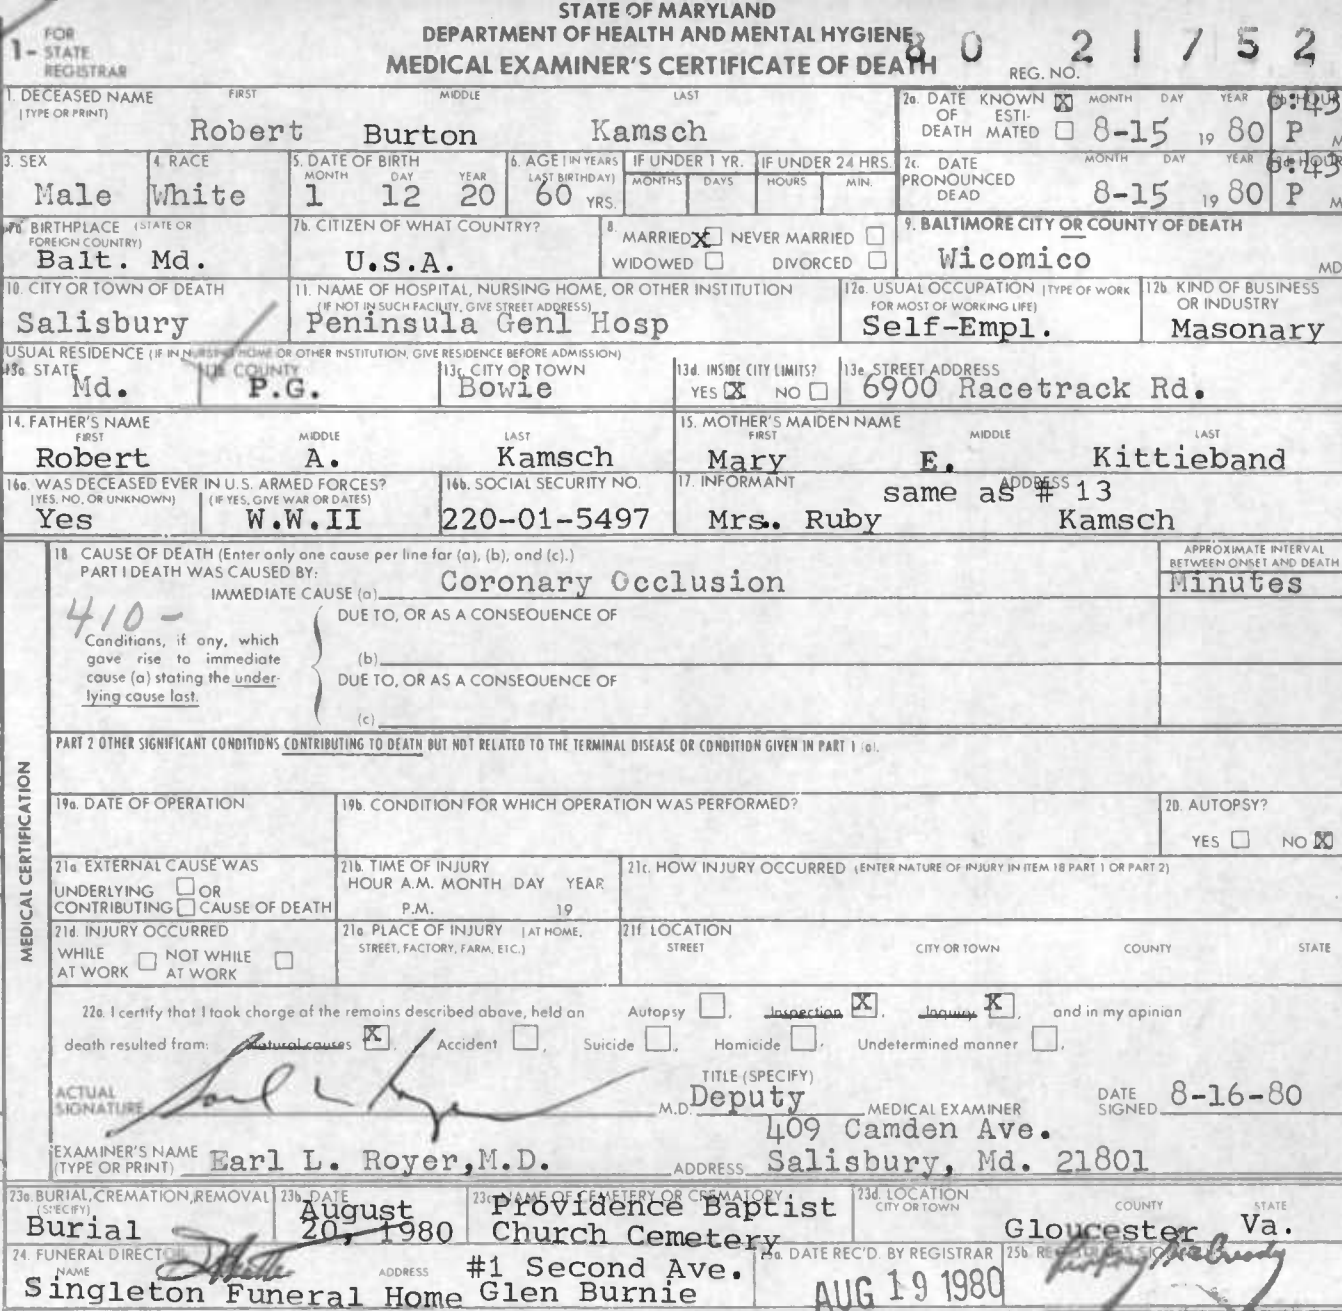 STATE OF MARYLAND
DEPARTMENT OF HEALTH AND MENTAL HYGIENE
MEDICAL EXAMINER'S CERTIFICATE OF DEATH
1- FOR STATE REGISTRAR
REG. NO. 80 21752
1. DECEASED NAME (TYPE OR PRINT) FIRST MIDDLE LAST
Robert Burton Kamsch
2a. DATE OF DEATH KNOWN X ESTIMATED MONTH DAY YEAR 8-15 19 80 HOUR 6:43 P M
3. SEX Male
4. RACE White
5. DATE OF BIRTH MONTH DAY YEAR 1 12 20
6. AGE (IN YEARS LAST BIRTHDAY) 60 YRS.
IF UNDER 1 YR. MONTHS DAYS
IF UNDER 24 HRS. HOURS MIN.
2c. DATE PRONOUNCED DEAD MONTH DAY YEAR 8-15 19 80 HOUR 6:43 P M
7a. BIRTHPLACE (STATE OR FOREIGN COUNTRY) Balt. Md.
7b. CITIZEN OF WHAT COUNTRY? U.S.A.
8. MARRIED X NEVER MARRIED
WIDOWED DIVORCED
9. BALTIMORE CITY OR COUNTY OF DEATH Wicomico MD
10. CITY OR TOWN OF DEATH Salisbury
11. NAME OF HOSPITAL, NURSING HOME, OR OTHER INSTITUTION
(IF NOT IN SUCH FACILITY, GIVE STREET ADDRESS)
Peninsula Genl Hosp
12a. USUAL OCCUPATION (TYPE OF WORK FOR MOST OF WORKING LIFE) Self-Empl.
12b. KIND OF BUSINESS OR INDUSTRY Masonary
USUAL RESIDENCE (IF IN NURSING HOME OR OTHER INSTITUTION, GIVE RESIDENCE BEFORE ADMISSION)
13a. STATE Md.
13b. COUNTY P.G.
13c. CITY OR TOWN Bowie
13d. INSIDE CITY LIMITS? YES X NO
13e. STREET ADDRESS 6900 Racetrack Rd.
14. FATHER'S NAME FIRST MIDDLE LAST
Robert A. Kamsch
15. MOTHER'S MAIDEN NAME FIRST MIDDLE LAST
Mary E. Kittieband
16a. WAS DECEASED EVER IN U.S. ARMED FORCES?
(YES, NO, OR UNKNOWN) (IF YES, GIVE WAR OR DATES)
Yes W.W.II
16b. SOCIAL SECURITY NO. 220-01-5497
17. INFORMANT ADDRESS same as # 13
Mrs. Ruby Kamsch
MEDICAL CERTIFICATION
18. CAUSE OF DEATH (Enter only one cause per line for (a), (b), and (c).)
PART I DEATH WAS CAUSED BY:
IMMEDIATE CAUSE (a) Coronary Occlusion
APPROXIMATE INTERVAL BETWEEN ONSET AND DEATH
Minutes
410 -
Conditions, if any, which
gave rise to immediate
cause (a) stating the under-
lying cause last.
DUE TO, OR AS A CONSEQUENCE OF
(b)
DUE TO, OR AS A CONSEQUENCE OF
(c)
PART 2 OTHER SIGNIFICANT CONDITIONS CONTRIBUTING TO DEATH BUT NOT RELATED TO THE TERMINAL DISEASE OR CONDITION GIVEN IN PART 1 (a).
19a. DATE OF OPERATION
19b. CONDITION FOR WHICH OPERATION WAS PERFORMED?
20. AUTOPSY? YES NO X
21a. EXTERNAL CAUSE WAS
UNDERLYING OR
CONTRIBUTING CAUSE OF DEATH
21b. TIME OF INJURY
HOUR A.M. MONTH DAY YEAR
P.M. 19
21c. HOW INJURY OCCURRED (ENTER NATURE OF INJURY IN ITEM 18 PART 1 OR PART 2)
21d. INJURY OCCURRED
WHILE AT WORK NOT WHILE AT WORK
21e. PLACE OF INJURY (AT HOME, STREET, FACTORY, FARM, ETC.)
21f. LOCATION STREET CITY OR TOWN COUNTY STATE
22a. I certify that I took charge of the remains described above, held an Autopsy, Inspection X, Inquiry X, and in my opinion
death resulted from: Natural causes X, Accident, Suicide, Homicide, Undetermined manner.
ACTUAL SIGNATURE Earl L Royer M.D.
TITLE (SPECIFY) Deputy MEDICAL EXAMINER
DATE SIGNED 8-16-80
EXAMINER'S NAME (TYPE OR PRINT) Earl L. Royer, M.D.
ADDRESS 409 Camden Ave.
Salisbury, Md. 21801
23a. BURIAL, CREMATION, REMOVAL (SPECIFY) Burial
23b. DATE August 20, 1980
23c. NAME OF CEMETERY OR CREMATORY Providence Baptist Church Cemetery
23d. LOCATION CITY OR TOWN COUNTY STATE
Gloucester Va.
24. FUNERAL DIRECTOR NAME ADDRESS
Singleton Funeral Home #1 Second Ave. Glen Burnie
25a. DATE REC'D. BY REGISTRAR AUG 19 1980
25b. REGISTRAR'S SIGNATURE